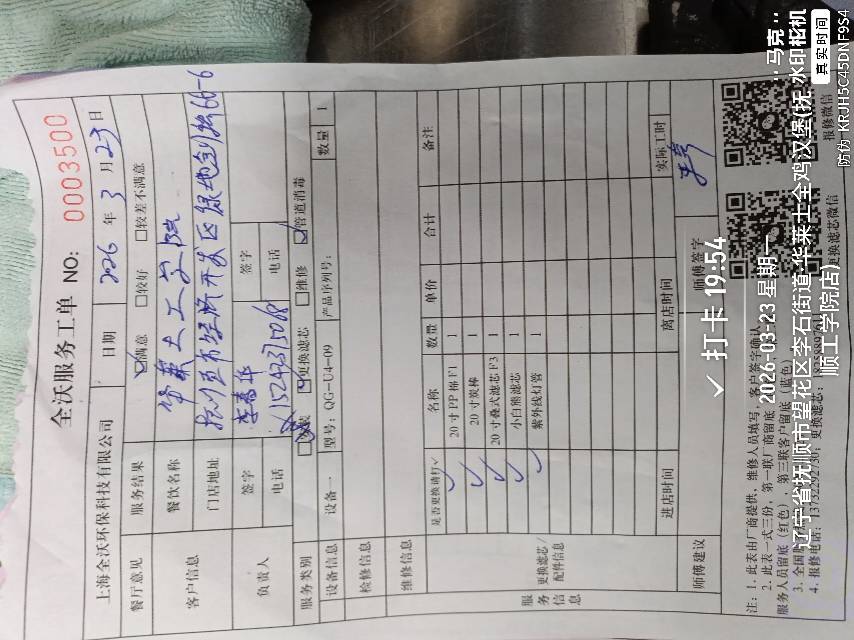 全沃服务工单 NO: 0003500
上海全沃环保科技有限公司 日期 2026 年 3 月 23 日
餐厅意见 服务结果 ☑满意 □较好 □较差不满意
客户信息 餐饮名称 华莱士工学院
门店地址 抚顺市经济开发区绿地剑桥66-6
负责人 签字 李春华 签字
电话 15242375068 电话
服务类别 □安装 ☑更换滤芯 □维修 ☑管道消毒
设备信息 设备一 型号: QG-U4-09 产品序列号: 数量 1
检修信息
维修信息
服务信息 更换滤芯/配件信息 是否更换请打✓ 名称 数量 单价 合计 备注
✓ 20寸PP棉F1 1
✓ 20寸炭棒 1
✓ 20寸叠式滤芯F3 1
✓ 小白熊滤芯 1
✓ 紫外线灯管 1
进店时间 离店时间 实际工时
师傅建议 师傅签字
注: 1. 此表由厂商提供、维修人员填写, 客户签字确认
2. 此表一式三份, 第一联厂商留底
服务人员留底 (红色), 第三联客户留底 (蓝色)
3. 全国
4. 报修电话: 13732292730; 更换滤芯:
更换滤芯微信
报修微信
✓ 打卡 19:54
2026-03-23 星期一
辽宁省抚顺市望花区李石街道·华莱士全鸡汉堡(抚顺工学院店)
马克
水印相机
真实时间
防伪 KRJH5C45DNF9S4